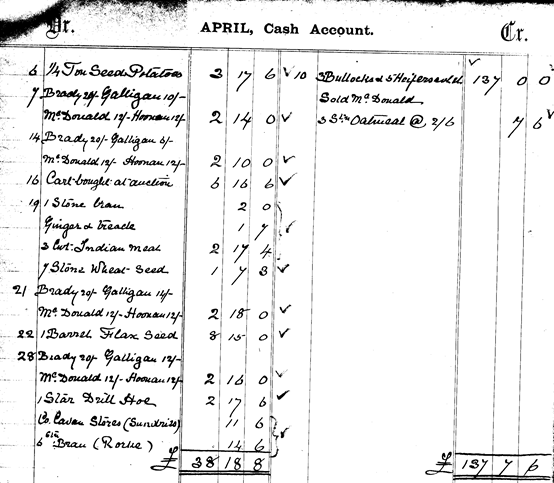 Dr. APRIL, Cash Account. Cr.
6 1/4 Ton Seed Potatoes 3 17 6
7 Brady 20/- Galligan 10/-
McDonald 12/- Hoonan 12/- 2 14 0
14 Brady 20/- Galligan 6/-
McDonald 12/- Hoonan 12/- 2 10 0
16 Cart bought at auction 6 16 6
19 1 Stone bran 2 0
Ginger & treacle 1 7
3 Cwt. Indian meal 2 17 4
7 Stone Wheat Seed 1 7 3
21 Brady 20/- Galligan 14/-
McDonald 12/- Hoonan 12/- 2 18 0
22 1 Barrel Flax Seed 8 15 0
28 Brady 20/- Galligan 12/-
McDonald 12/- Hoonan 12/- 2 16 0
1 Star Drill Hoe 2 17 6
Co. Cavan Stores (Sundries) 11 6
6 Bran (Rorke) 14 6
£ 38 18 8
10 3 Bullocks & 5 Heifers 137 0 0
Sold McDonald
3 Stn Oatmeal @ 2/6 7 6
£ 137 7 6